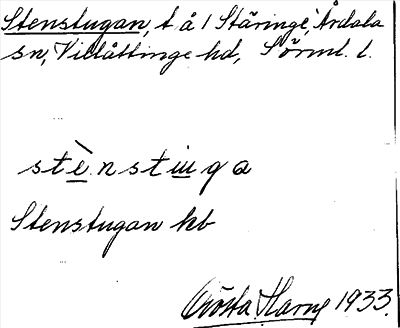 Stenstugan, t å 1 Stäringe, Årdala
sn, Villåttinge hd, Sörml. l.
stè̱nstu̱ga
Stenstugan kb
Gösta Harne 1933.